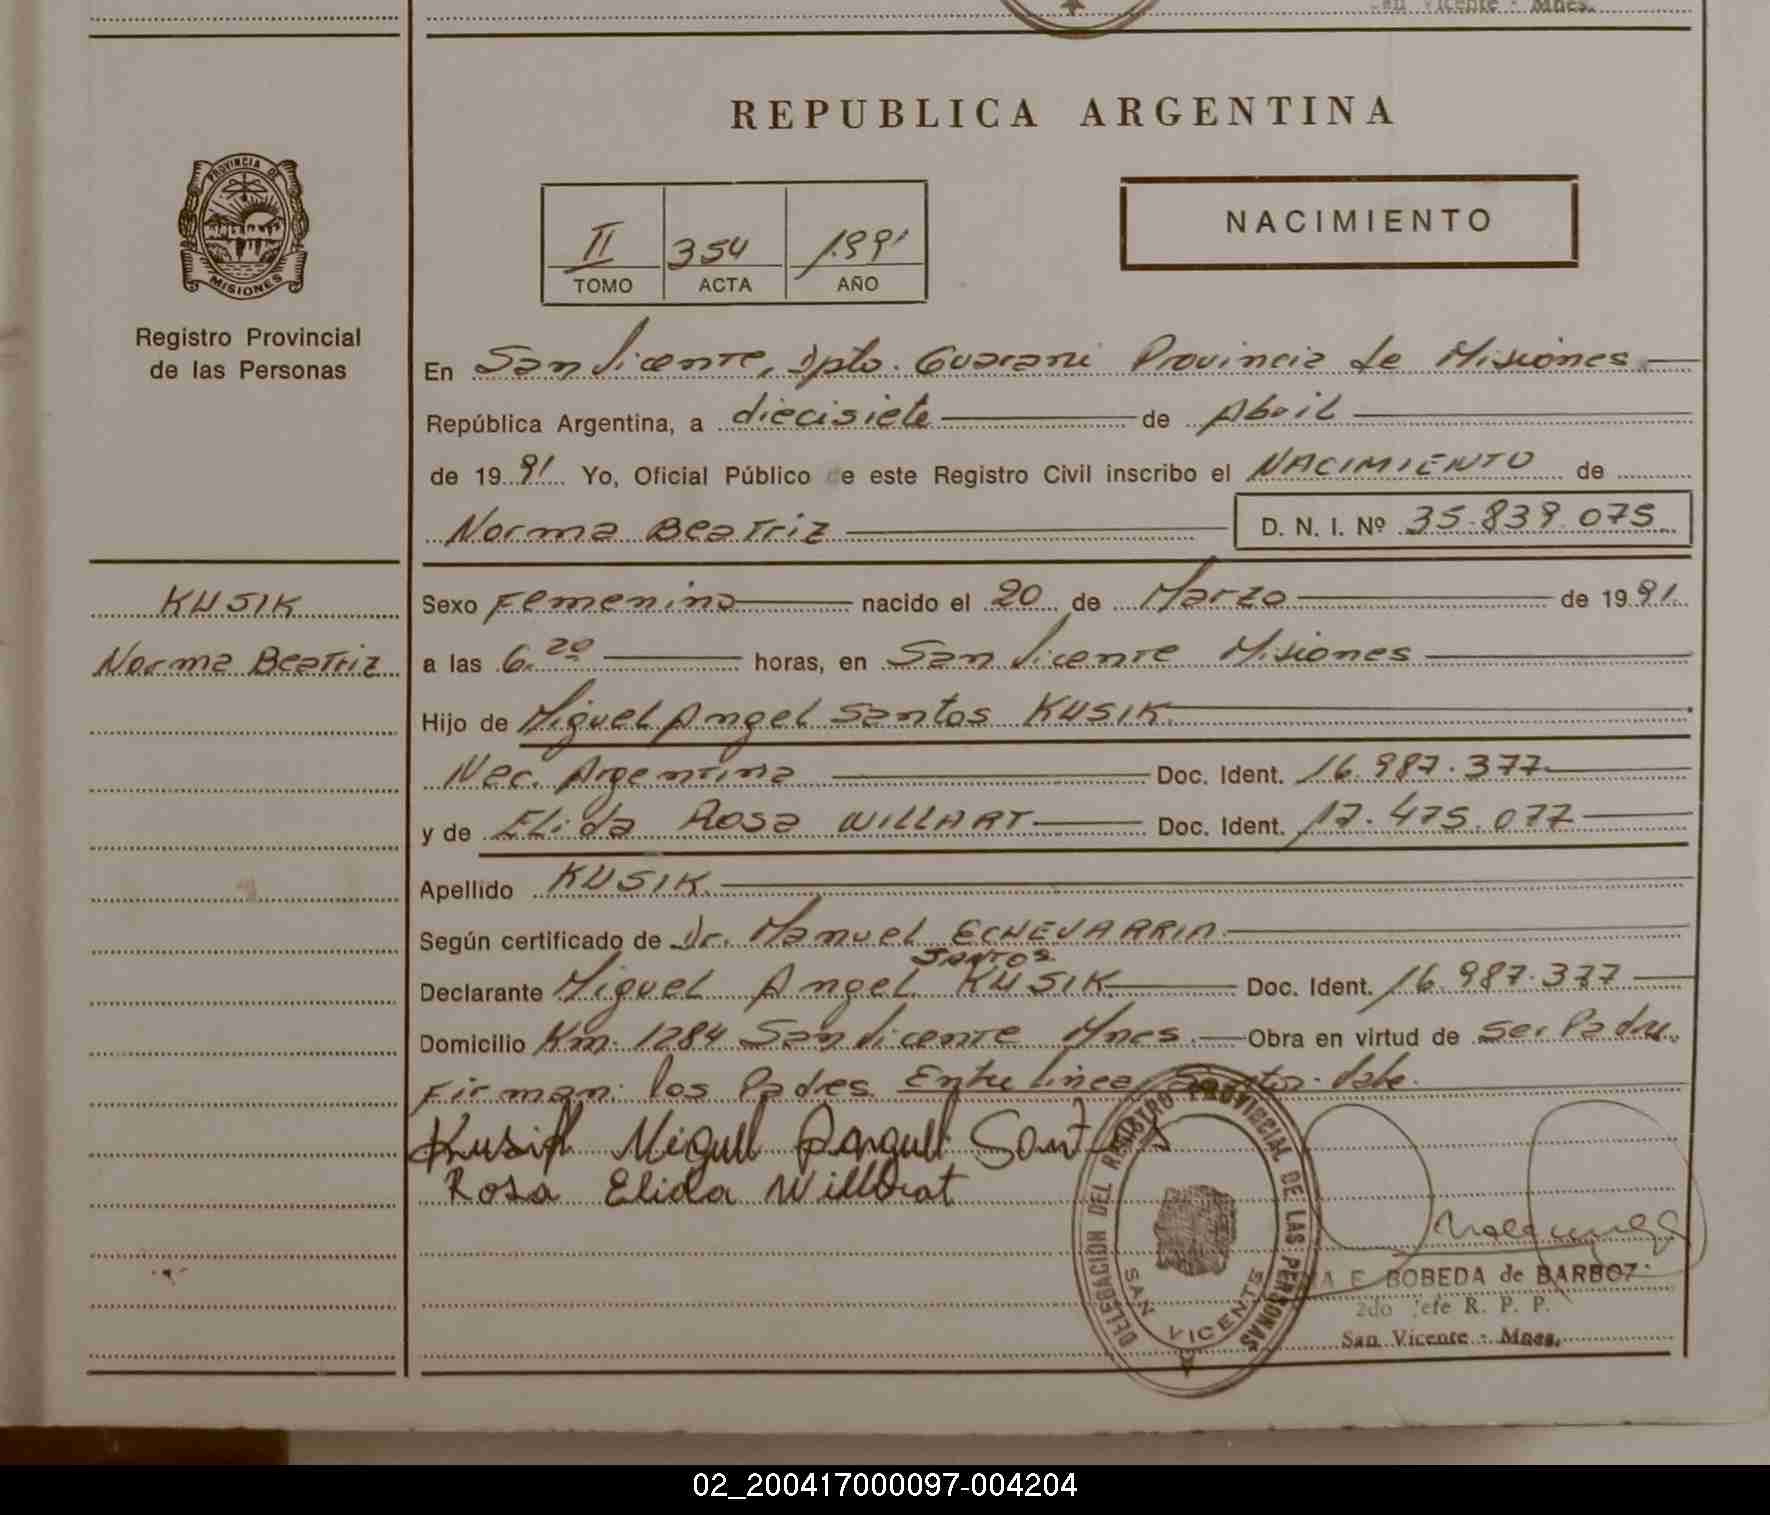 San Vicente - Mnes.
REPUBLICA ARGENTINA
PROVINCIA DE
MISIONES
Registro Provincial
de las Personas
II 354 1991
TOMO ACTA AÑO
NACIMIENTO
En San Vicente, Dpto. Guarani Provincia de Misiones
República Argentina, a diecisiete de Abril
de 1991 Yo, Oficial Público de este Registro Civil inscribo el NACIMIENTO de
Norma Beatriz D. N. I. Nº 35.839.075
KUSIK
Norma Beatriz
Sexo Femenino nacido el 20 de Marzo de 1991
a las 6.20 horas, en San Vicente Misiones
Hijo de Miguel Angel Santos KUSIK
Nac. Argentina Doc. Ident. 16.987.377
y de Elida Rosa WILLHART Doc. Ident. 17.475.077
Apellido KUSIK
Según certificado de Dr. Manuel ECHEVARRIA
Santos
Declarante Miguel Angel KUSIK Doc. Ident. 16.987.377
Domicilio Km. 1284 San Vicente Mnes. Obra en virtud de ser Padre.
Firman: los Padres. Entre linea: Santos. Vale.
Kusik Miguel Angel Santos
Rosa Elida
DELEGACIÓN DEL REGISTRO PROVINCIAL DE LAS PERSONAS
SAN VICENTE
A E BOBEDA de BARBOZ
2do Jefe R. P. P.
San Vicente - Mnes.
02_200417000097-004204